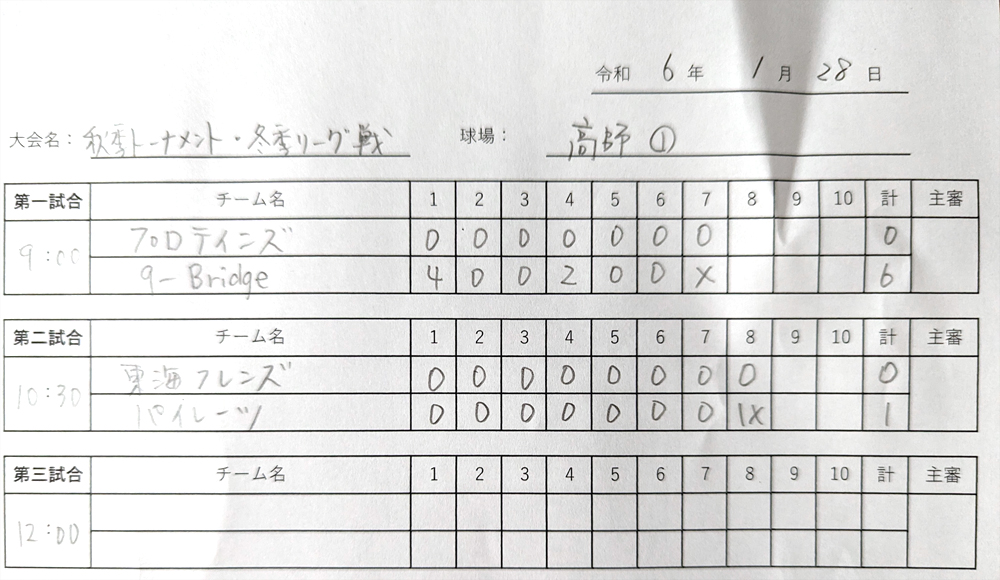 令和 6 年 1 月 28 日
大会名： 秋季トーナメント・冬季リーグ戦 球場： 高師 ①
第一試合 チーム名 1 2 3 4 5 6 7 8 9 10 計 主審
9:00
プロテインズ 0 0 0 0 0 0 0 0
9-Bridge 4 0 0 2 0 0 X 6
第二試合 チーム名 1 2 3 4 5 6 7 8 9 10 計 主審
10:30
東海フレンズ 0 0 0 0 0 0 0 0 0
パイレーツ 0 0 0 0 0 0 0 1X 1
第三試合 チーム名 1 2 3 4 5 6 7 8 9 10 計 主審
12:00